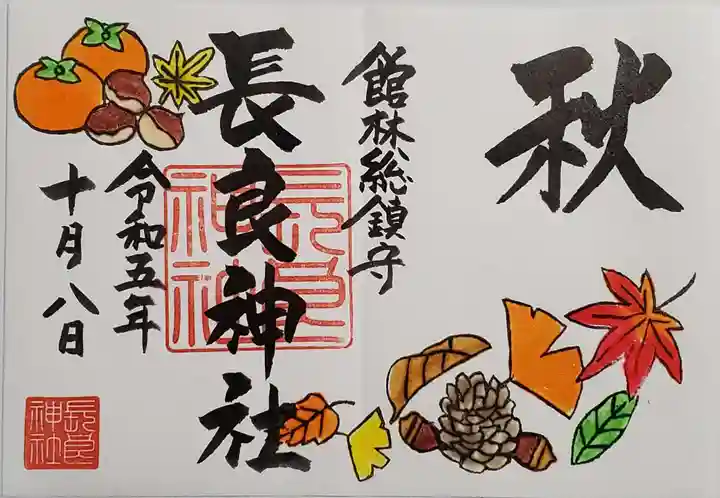 秋
館林総鎮守
長良神社
令和五年
十月八日
長良
神社
長良
神社